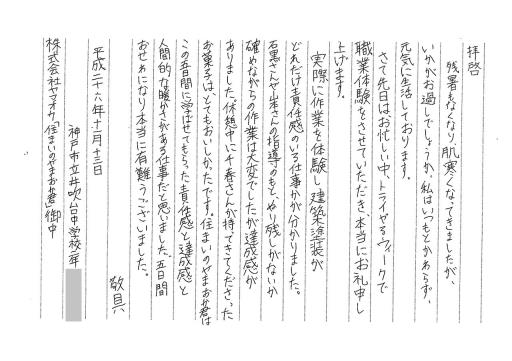 拝啓
残暑もなくなり肌寒くなってきましたが、
いかがお過しでしょうか。私はいつもとかわらず、
元気に生活しております。
さて先日はお忙しい中、トライやるウィークで
職業体験をさせていただき、本当にお礼申し
上げます。
実際に作業を体験し建築塗装が
どれだけ責任感のいる仕事かが分かりました。
石黒さんや山本さんの指導のもと、ぬり残しがないか
確めながらの作業は大変でしたが達成感が
ありました。休憩中に千春さんが持ってきてくださった
お菓子は、とてもおいしかったです。住まいのやまおか君は
この五日間に学ばせてもらった責任感と達成感と
人間的な暖かさがある仕事だと思いました。五日間
おせわになり本当に有難うございました。
敬具
平成二十六年十一月十三日
神戸市立井吹台中学校二年
株式会社ヤマオカ「住まいのやまおか君」御中